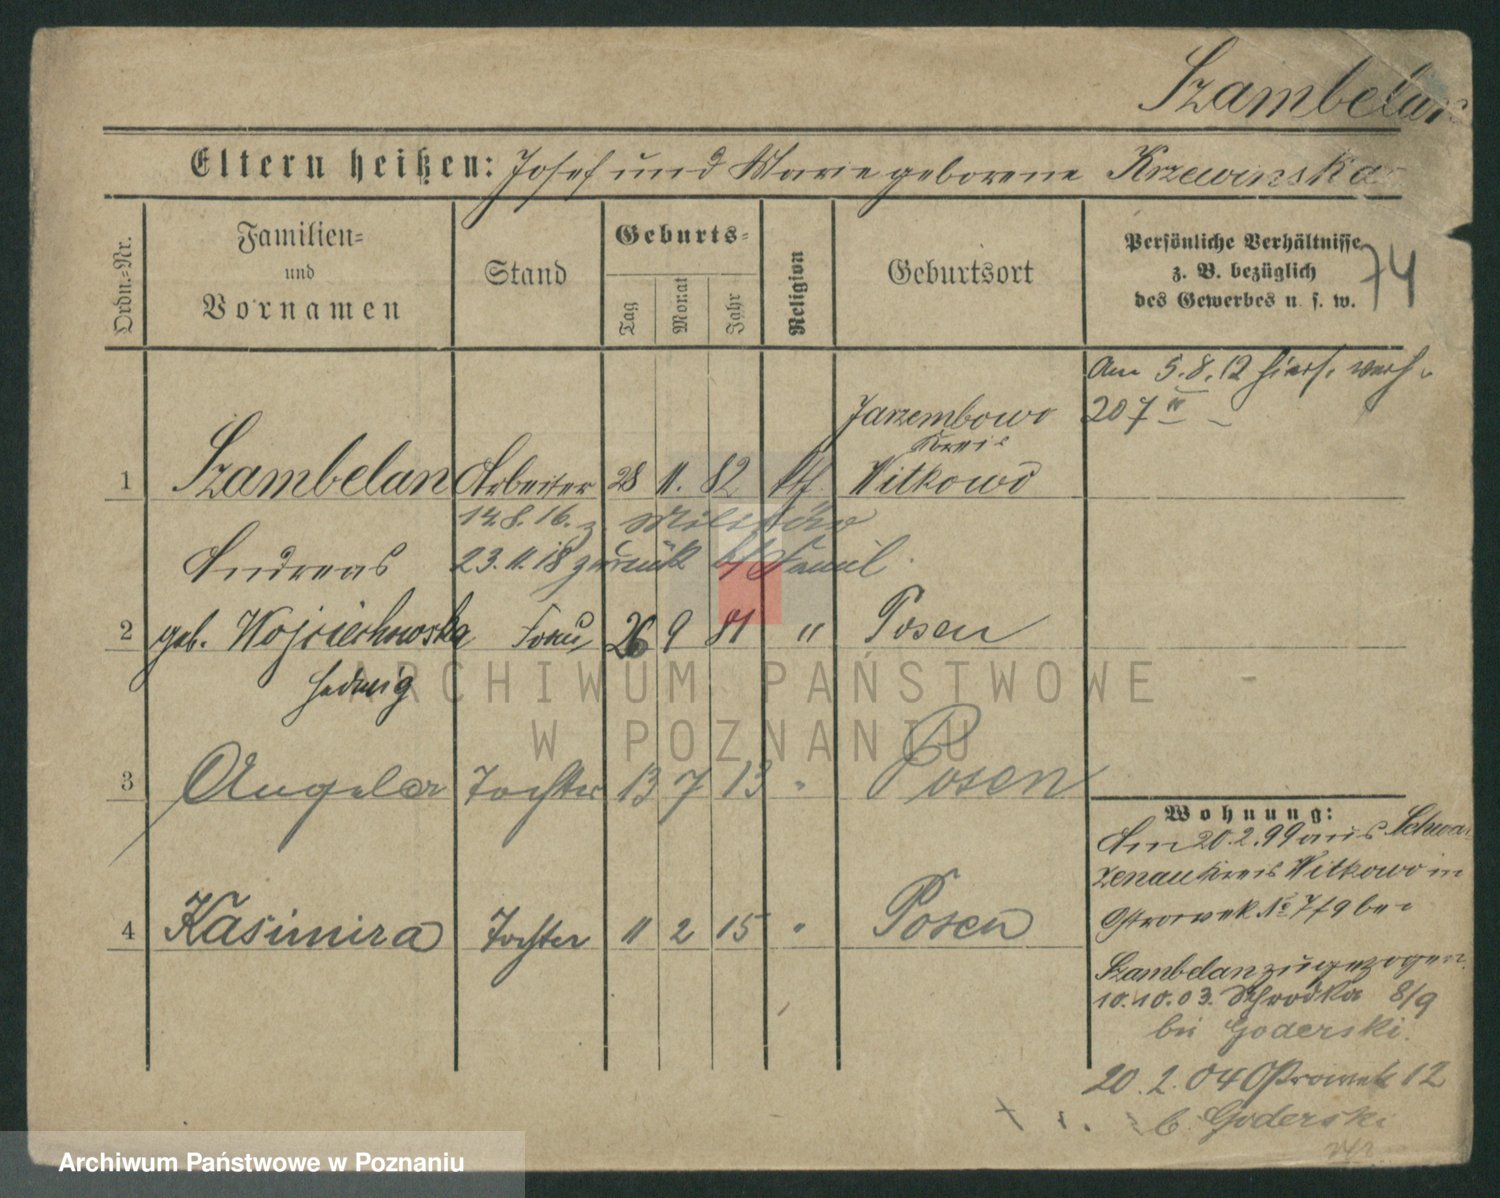 Szambelan
Eltern heißen: Josef und Marie geborene Krzewinska
Ordn.-Nr.
Familien-
und
Vornamen
Stand
Geburts-
Tag
Monat
Jahr
Religion
Geburtsort
Persönliche Verhältnisse
z. B. bezüglich
des Gewerbes u. s. w.
74
Am 5.8.12 hiers. verh.
207
Jarzembowo
Kreis
1 Szambelan Arbeiter 28 11. 82 kt Witkowo
14.8.16. z. Militär
Andreas 23.11.18 zurück Famil.
2 geb. Wojciechowska Frau 26 9 81 " Posen
Hedwig
ARCHIWUM PAŃSTWOWE
W POZNANIU
3 Angela Tochter 13 7 13 " Posen
4 Kasimira Tochter 11 2 15 " Posen
Wohnung:
Am 20.2.99 aus Schwar
zenau Kreis Witkowo in
Ostrowek No 7/9 bei
Szambelan zugezogen.
10.10.03. Schrodka 8/9
bei Goderski.
20.2.04 Ostrowek 12
b. Goderski
Archiwum Państwowe w Poznaniu